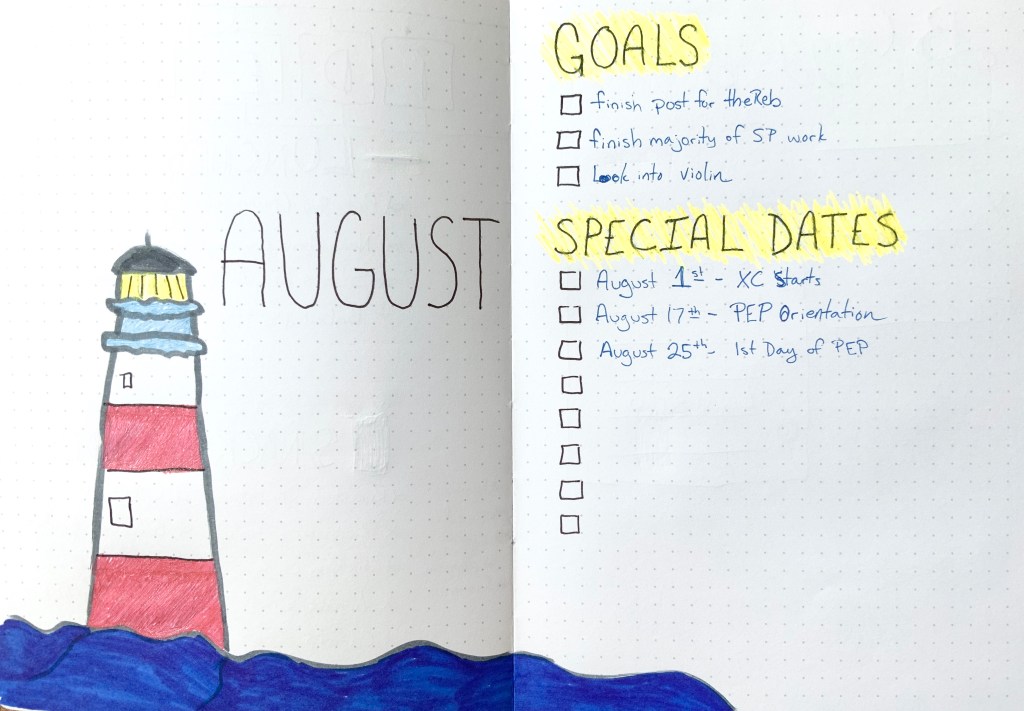 AUGUST
GOALS
finish post for theReb
finish majority of S.P. work
Look into violin
SPECIAL DATES
August 1st - XC Starts
August 17th - PEP Orientation
August 25th - 1st Day of PEP